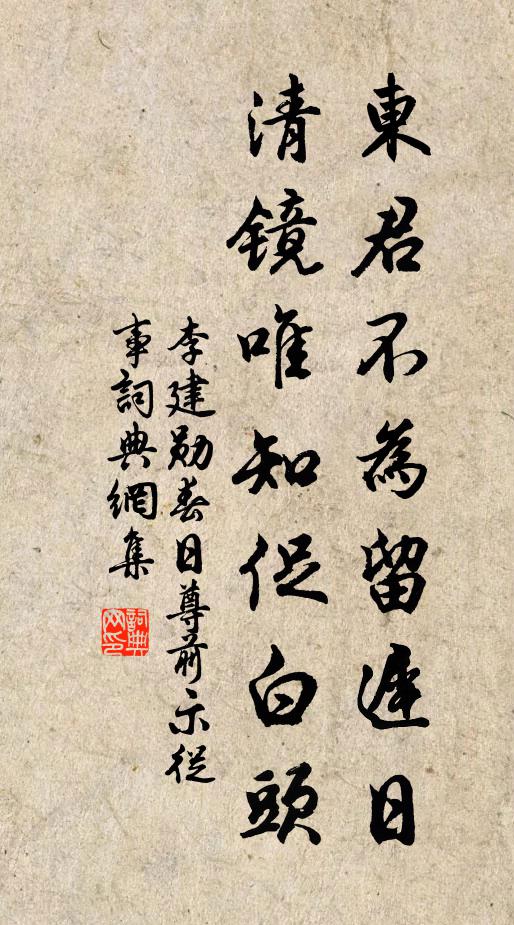 東君不為留遲日
清鏡唯知促白頭
李建勛春日尊前示從
事詞典網集
詞典
网印